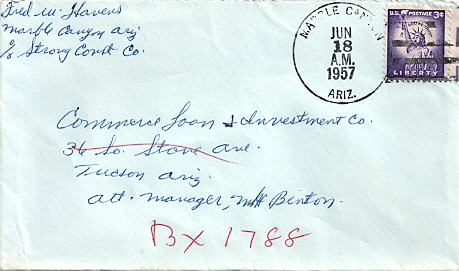 Fred W. Havens
Marble Canyon Ariz
c/o Strong Const Co.
MARBLE CANYON
JUN
18
A.M.
1957
ARIZ.
U.S. POSTAGE 3¢
LIBERTY
Commerce Loan & Investment Co.
36 So. Stone Ave.
Tucson Ariz.
att. Manager, Binton.
Bx 1788